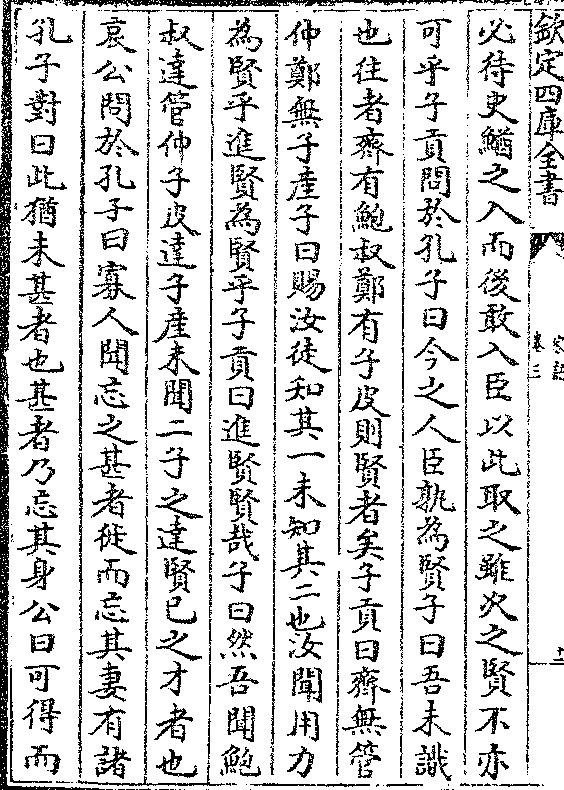 欽定四庫全書
卷三
必待史鰌之入而後敢入臣以此取之雖次之賢不亦
可乎子貢問於孔子曰今之人臣孰為賢子曰吾未識
也往者齊有鮑叔鄭有子皮則賢者矣子貢曰齊無管
仲鄭無子產子曰賜汝徒知其一未知其二也汝聞用力
為賢乎進賢為賢乎子貢曰進賢賢哉子曰然吾聞鮑
叔達管仲子皮達子產未聞二子之達賢已之才者也
哀公問於孔子曰寡人聞忘之甚者徙而忘其妻有諸
孔子對曰此猶未甚者也甚者乃忘其身公曰可得而